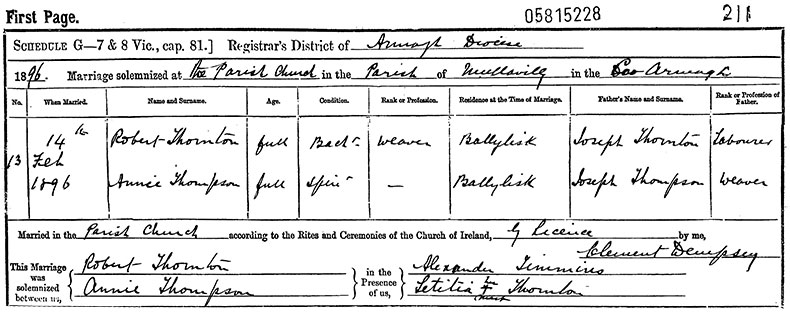 First Page. 05815228 211
SCHEDULE G—7 & 8 Vic., cap. 81.] Registrar's District of Armagh Diocese
1896. Marriage solemnized at the Parish Church in the Parish of Mullavilly in the Coo Armagh
No. When Married. Name and Surname. Age. Condition. Rank or Profession. Residence at the Time of Marriage. Father's Name and Surname. Rank or Profession of Father.
13 14th Feb 1896 Robert Thornton full Bachr weaver Ballylisk Joseph Thornton Labourer
Annie Thompson full Spinr — Ballylisk Joseph Thompson Weaver
Married in the Parish Church according to the Rites and Ceremonies of the Church of Ireland, by Licence by me,
Clement Dempsey
This Marriage was solemnized between us, Robert Thornton
Annie Thompson
in the Presence of us, Alexander Timmins
Letitia her X mark Thornton